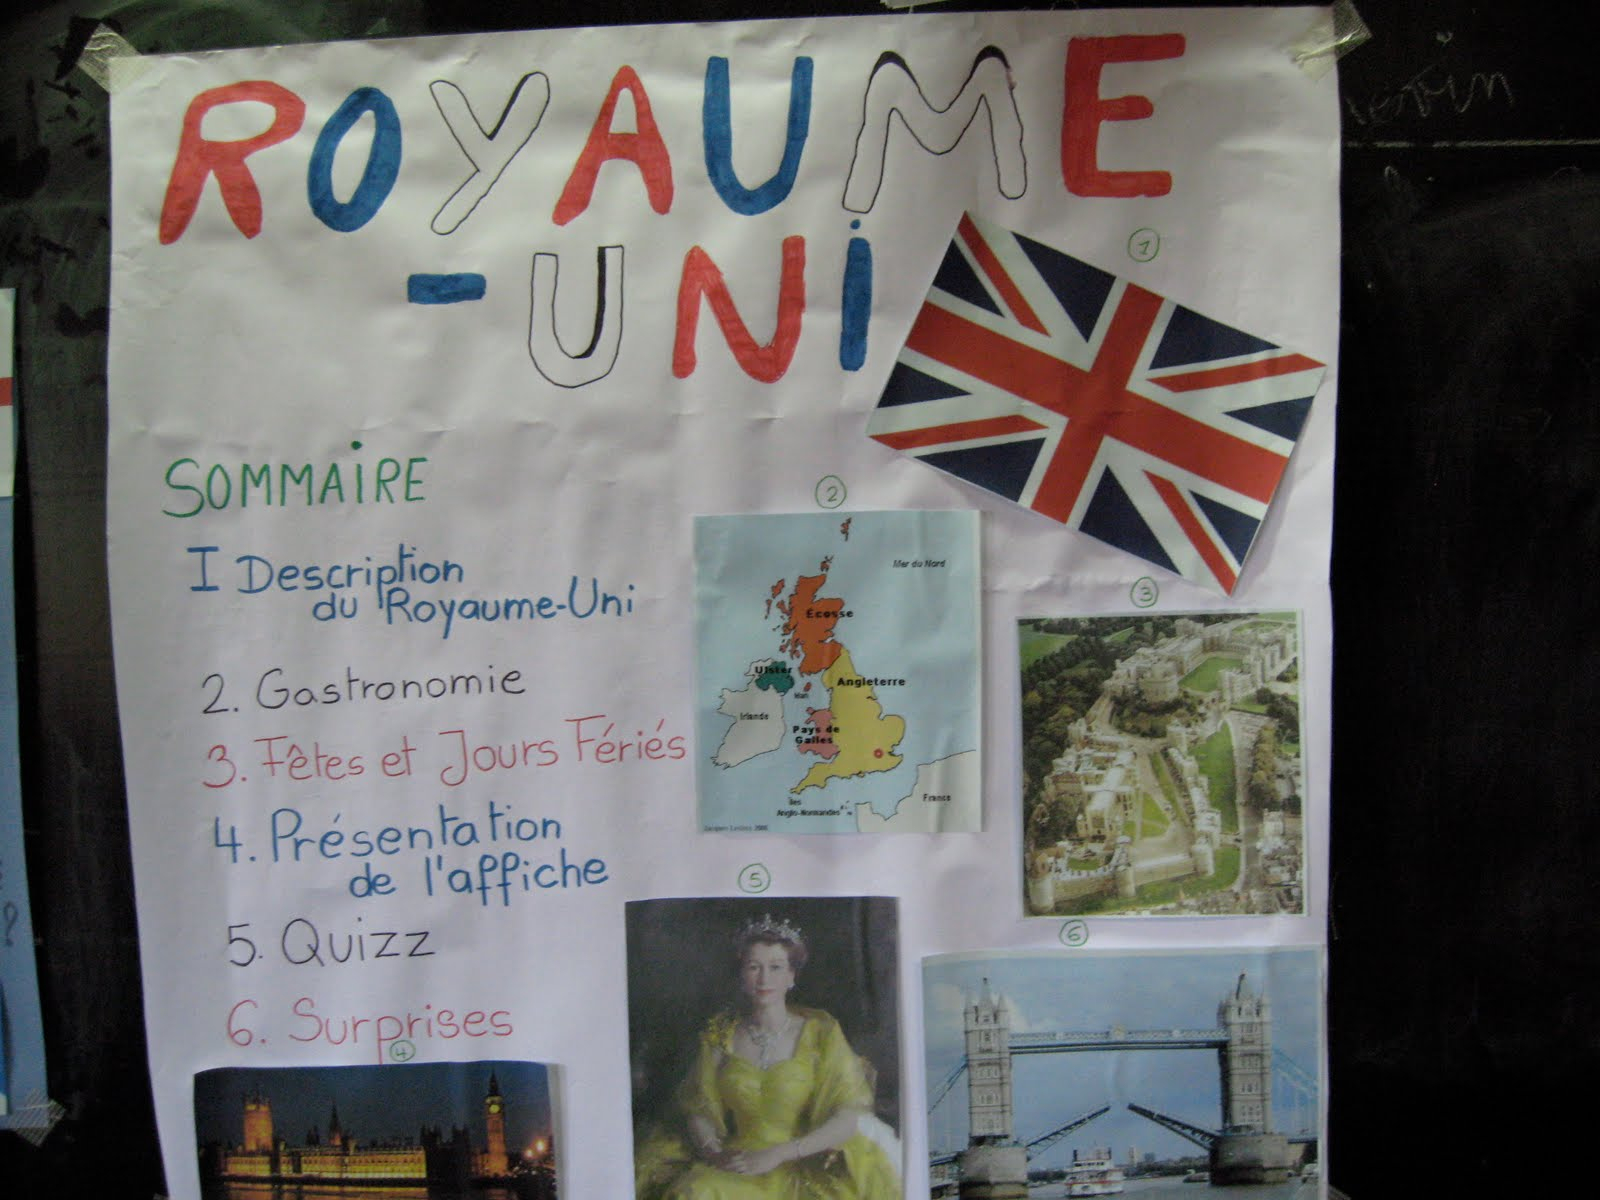 ROYAUME
-UNi
SOMMAiRE
I Description
du Royaume-Uni
2. Gastronomie
3. Fêtes et Jours Fériés
4. Présentation
de l'affiche
5. Quizz
6. Surprises
1
2
Mer du Nord
Écosse
Ulster
Man
Angleterre
Irlande
Pays de
Galles
France
Îles
Anglo-Normandes
3
4
5
6
?